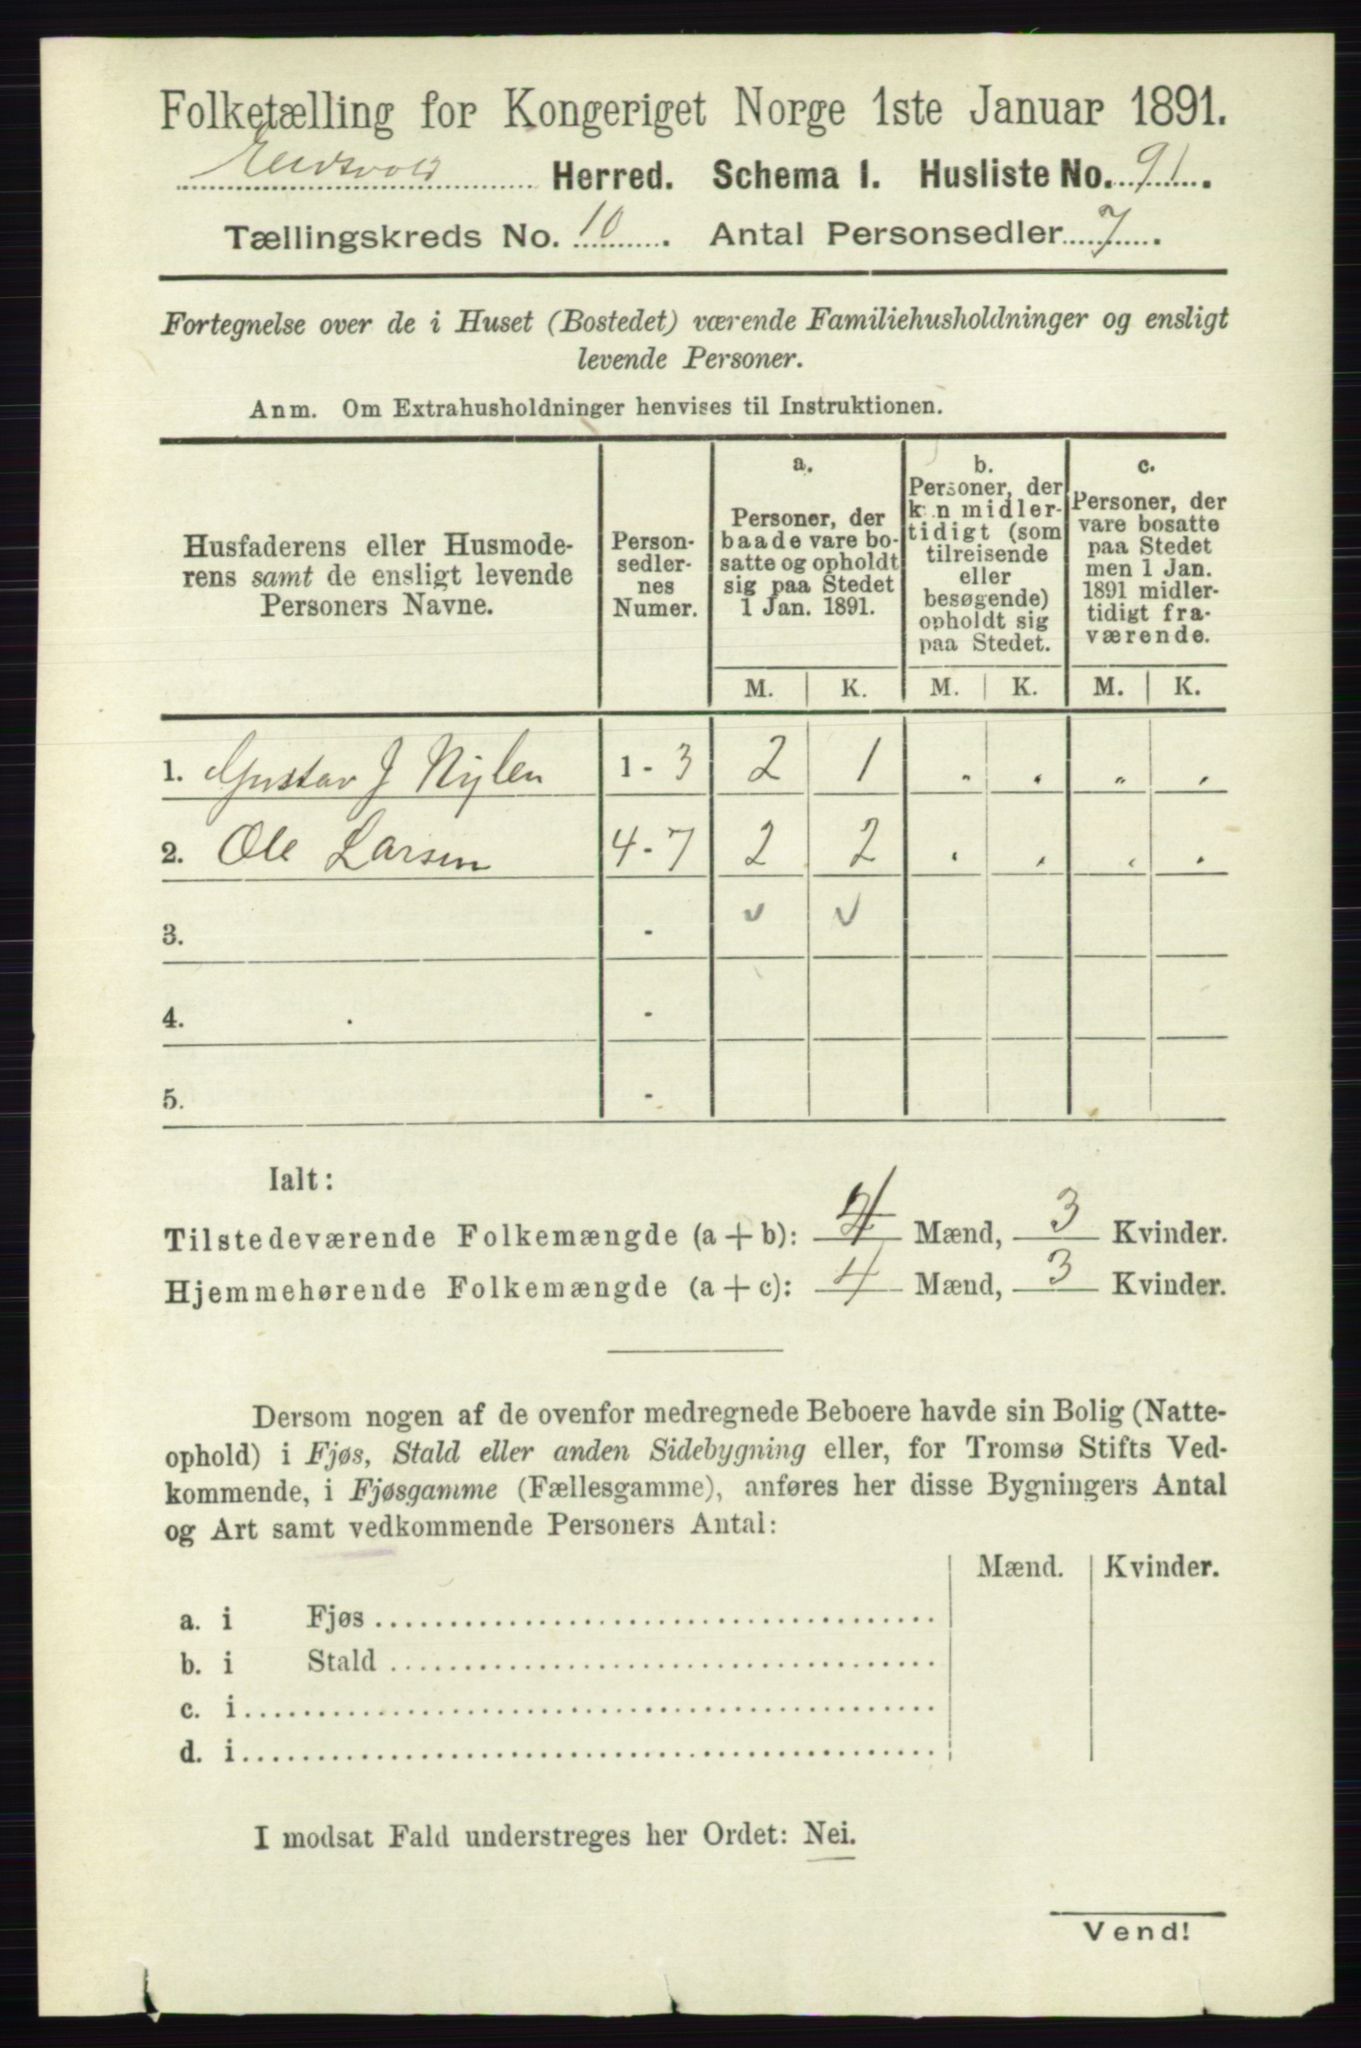 Folketælling for Kongeriget Norge 1ste Januar 1891.
Eidsvold Herred. Schema 1. Husliste No. 91.
Tællingskreds No. 10. Antal Personsedler 7.
Fortegnelse over de i Huset (Bostedet) værende Familiehusholdninger og ensligt
levende Personer.
Anm. Om Extrahusholdninger henvises til Instruktionen.
Husfaderens eller Husmode-
rens samt de ensligt levende
Personers Navne.
Person-
sedler-
nes
Numer.
a.
Personer, der
baade vare bo-
satte og opholdt
sig paa Stedet
1 Jan. 1891.
b.
Personer, der
kun midler-
tidigt (som
tilreisende
eller
besøgende)
opholdt sig
paa Stedet.
c.
Personer, der
vare bosatte
paa Stedet
men 1 Jan.
1891 midler-
tidigt fra-
værende.
M. K. M. K. M. K.
1. Gustav J Nylen 1 - 3 2 1 . . „ .
2. Ole Larsen 4 - 7 2 2 . . . .
3. - v v
4. -
5. -
Ialt:
Tilstedeværende Folkemængde (a + b): 4 Mænd, 3 Kvinder.
Hjemmehørende Folkemængde (a + c): 4 Mænd, 3 Kvinder.
Dersom nogen af de ovenfor medregnede Beboere havde sin Bolig (Natte-
ophold) i Fjøs, Stald eller anden Sidebygning eller, for Tromsø Stifts Ved-
kommende, i Fjøsgamme (Fællesgamme), anføres her disse Bygningers Antal
og Art samt vedkommende Personers Antal:
Mænd. Kvinder.
a. i Fjøs
b. i Stald
c. i
d. i
I modsat Fald understreges her Ordet: Nei.
Vend!